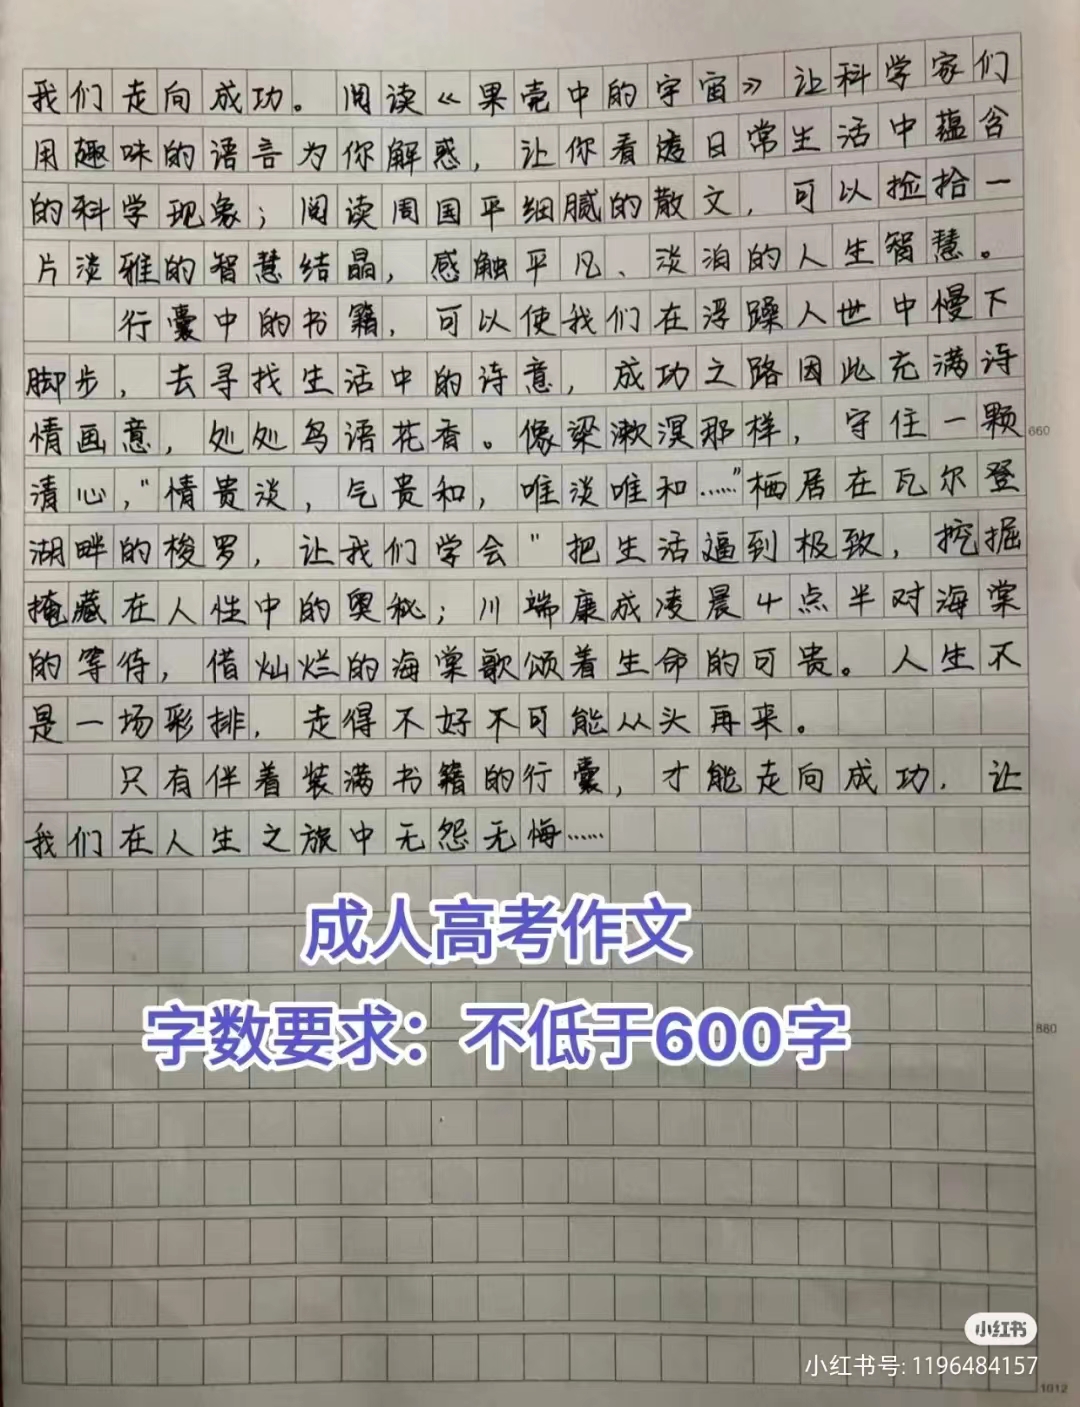 我们走向成功。阅读《果壳中的宇宙》让科学家们
用趣味的语言为你解惑，让你看透日常生活中蕴含
的科学现象；阅读周国平细腻的散文，可以捡拾一
片淡雅的智慧结晶，感触平凡、淡泊的人生智慧。
行囊中的书籍，可以使我们在浮躁人世中慢下
脚步，去寻找生活中的诗意，成功之路因此充满诗
情画意，处处鸟语花香。像梁漱溟那样，守住一颗
清心，"情贵淡，气贵和，唯淡唯和……"栖居在瓦尔登
湖畔的梭罗，让我们学会"把生活逼到极致，挖掘
掩藏在人性中的奥秘；川端康成凌晨4点半对海棠
的等待，借灿烂的海棠歌颂着生命的可贵。人生不
是一场彩排，走得不好不可能从头再来。
只有伴着装满书籍的行囊，才能走向成功，让
我们在人生之旅中无怨无悔……
成人高考作文
字数要求：不低于600字
660
880
小红书
小红书号: 1196484157
1012